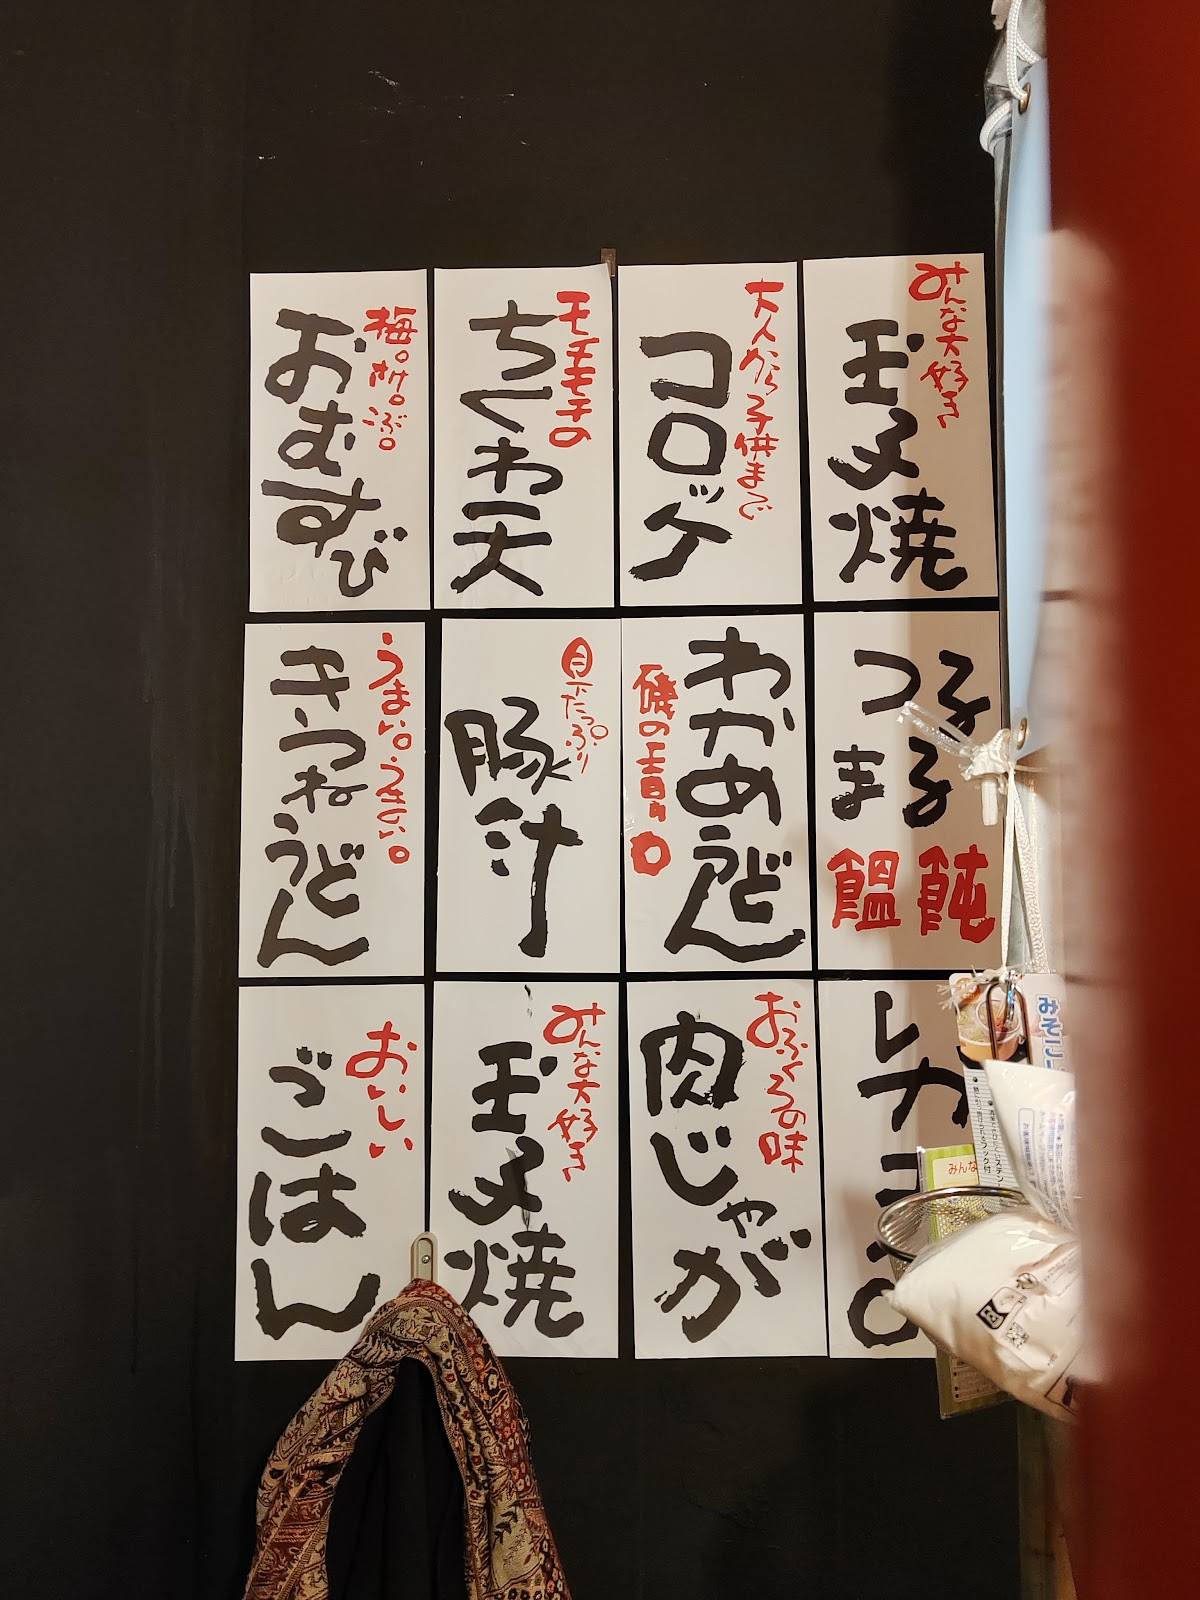 みんな大好き
玉子焼
大人から子供まで
コロッケ
モチモチの
ちくわ天
梅。
おむすび
つる
まる
饂飩
わかめうどん
磯の香り
具たっぷり
豚汁
うまい。
きつねうどん
おふくろの味
肉じゃが
みんな大好き
玉子焼
おいしい
ごはん
みそこ
みんな